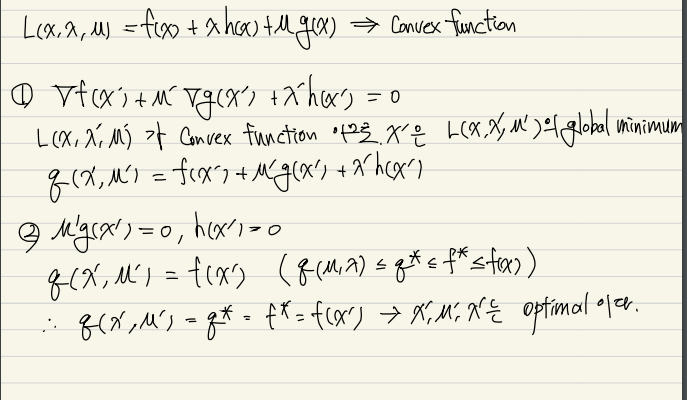 L(x,λ,μ) = f(x) + λh(x) + μg(x) ⇒ Convex function
① ∇f(x') + μ'∇g(x') + λ'h(x') = 0
L(x,λ',μ') 가 Convex function 이므로 x'은 L(x,λ',μ')의 global minimum
q(λ',μ') = f(x') + μ'g(x') + λ'h(x')
② μ'g(x') = 0, h(x') = 0
q(λ',μ') = f(x') (q(μ,λ) ≤ q* ≤ f* ≤ f(x))
∴ q(λ',μ') = q* = f* = f(x') → x',μ',λ'는 optimal 이다.